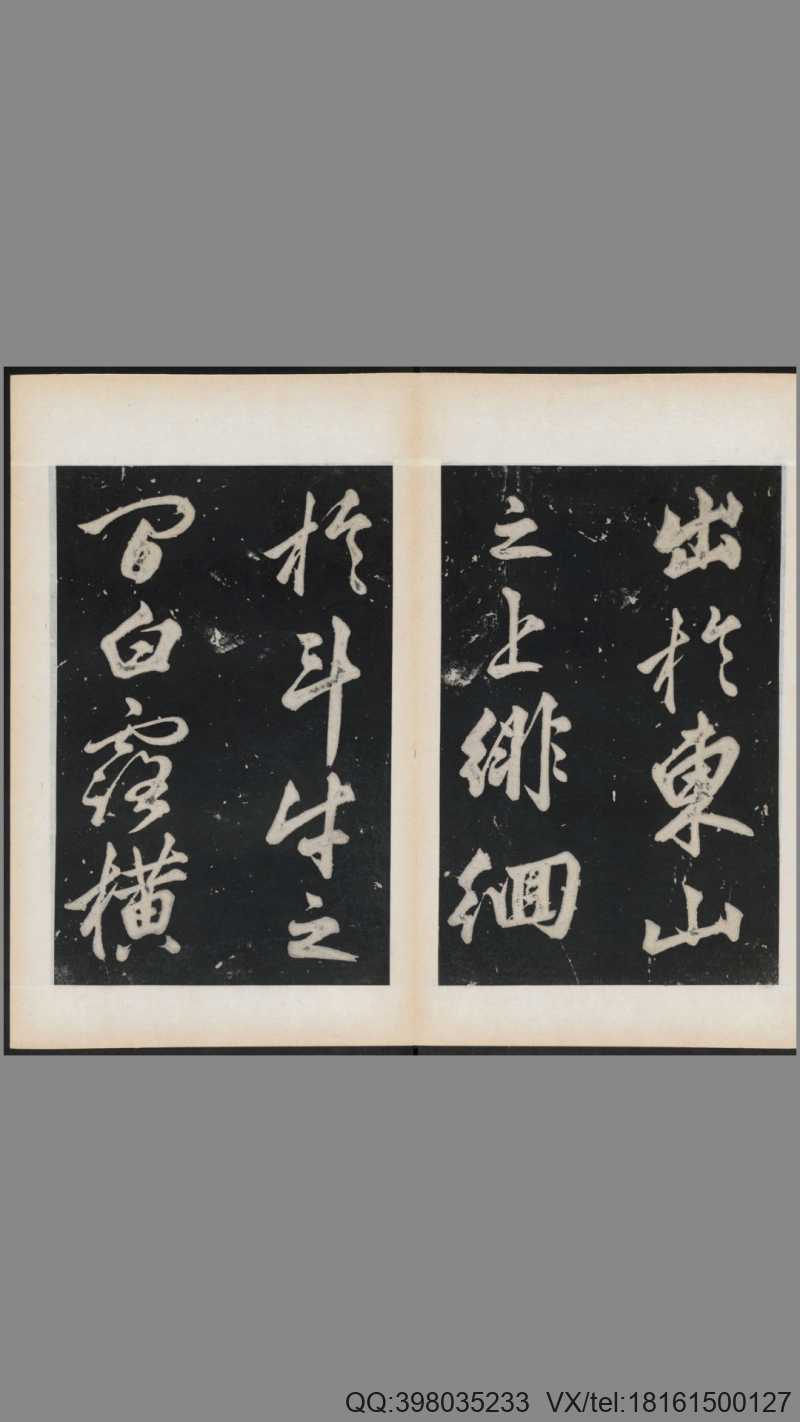 出於東山
之上徘徊
於斗牛之
間白露橫
QQ:398035233 VX/tel:18161500127